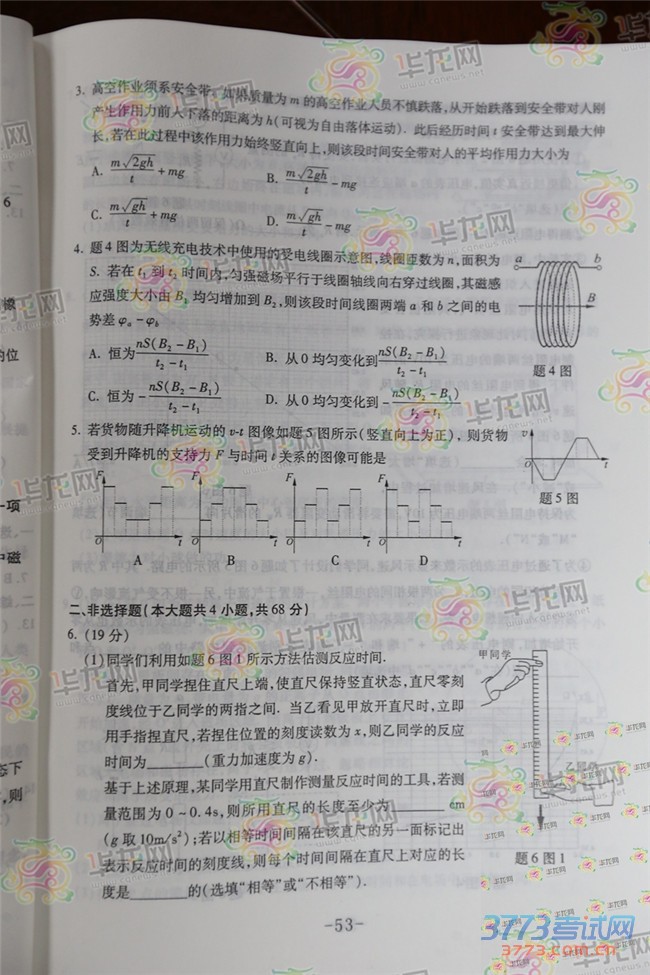 3. 高空作业须系安全带. 如果质量为 m 的高空作业人员不慎跌落,从开始跌落到安全带对人刚
产生作用力前人下落的距离为 h(可视为自由落体运动). 此后经历时间 t 安全带达到最大伸
长,若在此过程中该作用力始终竖直向上,则该段时间安全带对人的平均作用力大小为
A. m√2gh/t + mg B. m√2gh/t − mg
C. m√gh/t + mg D. m√gh/t − mg
4. 题 4 图为无线充电技术中使用的受电线圈示意图,线圈匝数为 n,面积为
S. 若在 t₁ 到 t₂ 时间内,匀强磁场平行于线圈轴线向右穿过线圈,其磁感
应强度大小由 B₁ 均匀增加到 B₂,则该段时间线圈两端 a 和 b 之间的电
势差 φa − φb
A. 恒为 nS(B₂ − B₁)/(t₂ − t₁) B. 从 0 均匀变化到 nS(B₂ − B₁)/(t₂ − t₁)
C. 恒为 − nS(B₂ − B₁)/(t₂ − t₁) D. 从 0 均匀变化到 − nS(B₂ − B₁)/(t₂ − t₁)
a b
B
题 4 图
5. 若货物随升降机运动的 v-t 图像如题 5 图所示(竖直向上为正), 则货物
受到升降机的支持力 F 与时间 t 关系的图像可能是
v
O t
题 5 图
F F F F
O t O t O t O t
A B C D
二、非选择题(本大题共 4 小题,共 68 分)
6. (19 分)
(1)同学们利用如题 6 图 1 所示方法估测反应时间.
首先,甲同学捏住直尺上端,使直尺保持竖直状态,直尺零刻
度线位于乙同学的两指之间. 当乙看见甲放开直尺时,立即
用手指捏直尺,若捏住位置的刻度读数为 x,则乙同学的反应
时间为______(重力加速度为 g).
基于上述原理,某同学用直尺制作测量反应时间的工具,若测
量范围为 0 ~ 0.4s,则所用直尺的长度至少为______ cm
(g 取 10m/s²);若以相等时间间隔在该直尺的另一面标记出
表示反应时间的刻度线,则每个时间间隔在直尺上对应的长
度是______的(选填“相等”或“不相等”).
甲同学
乙同学
题 6 图 1
-53-
6
的位
一项
中磁
态下
,则
华龙网
www.cqnews.net
3773考试网
3773.com.cn